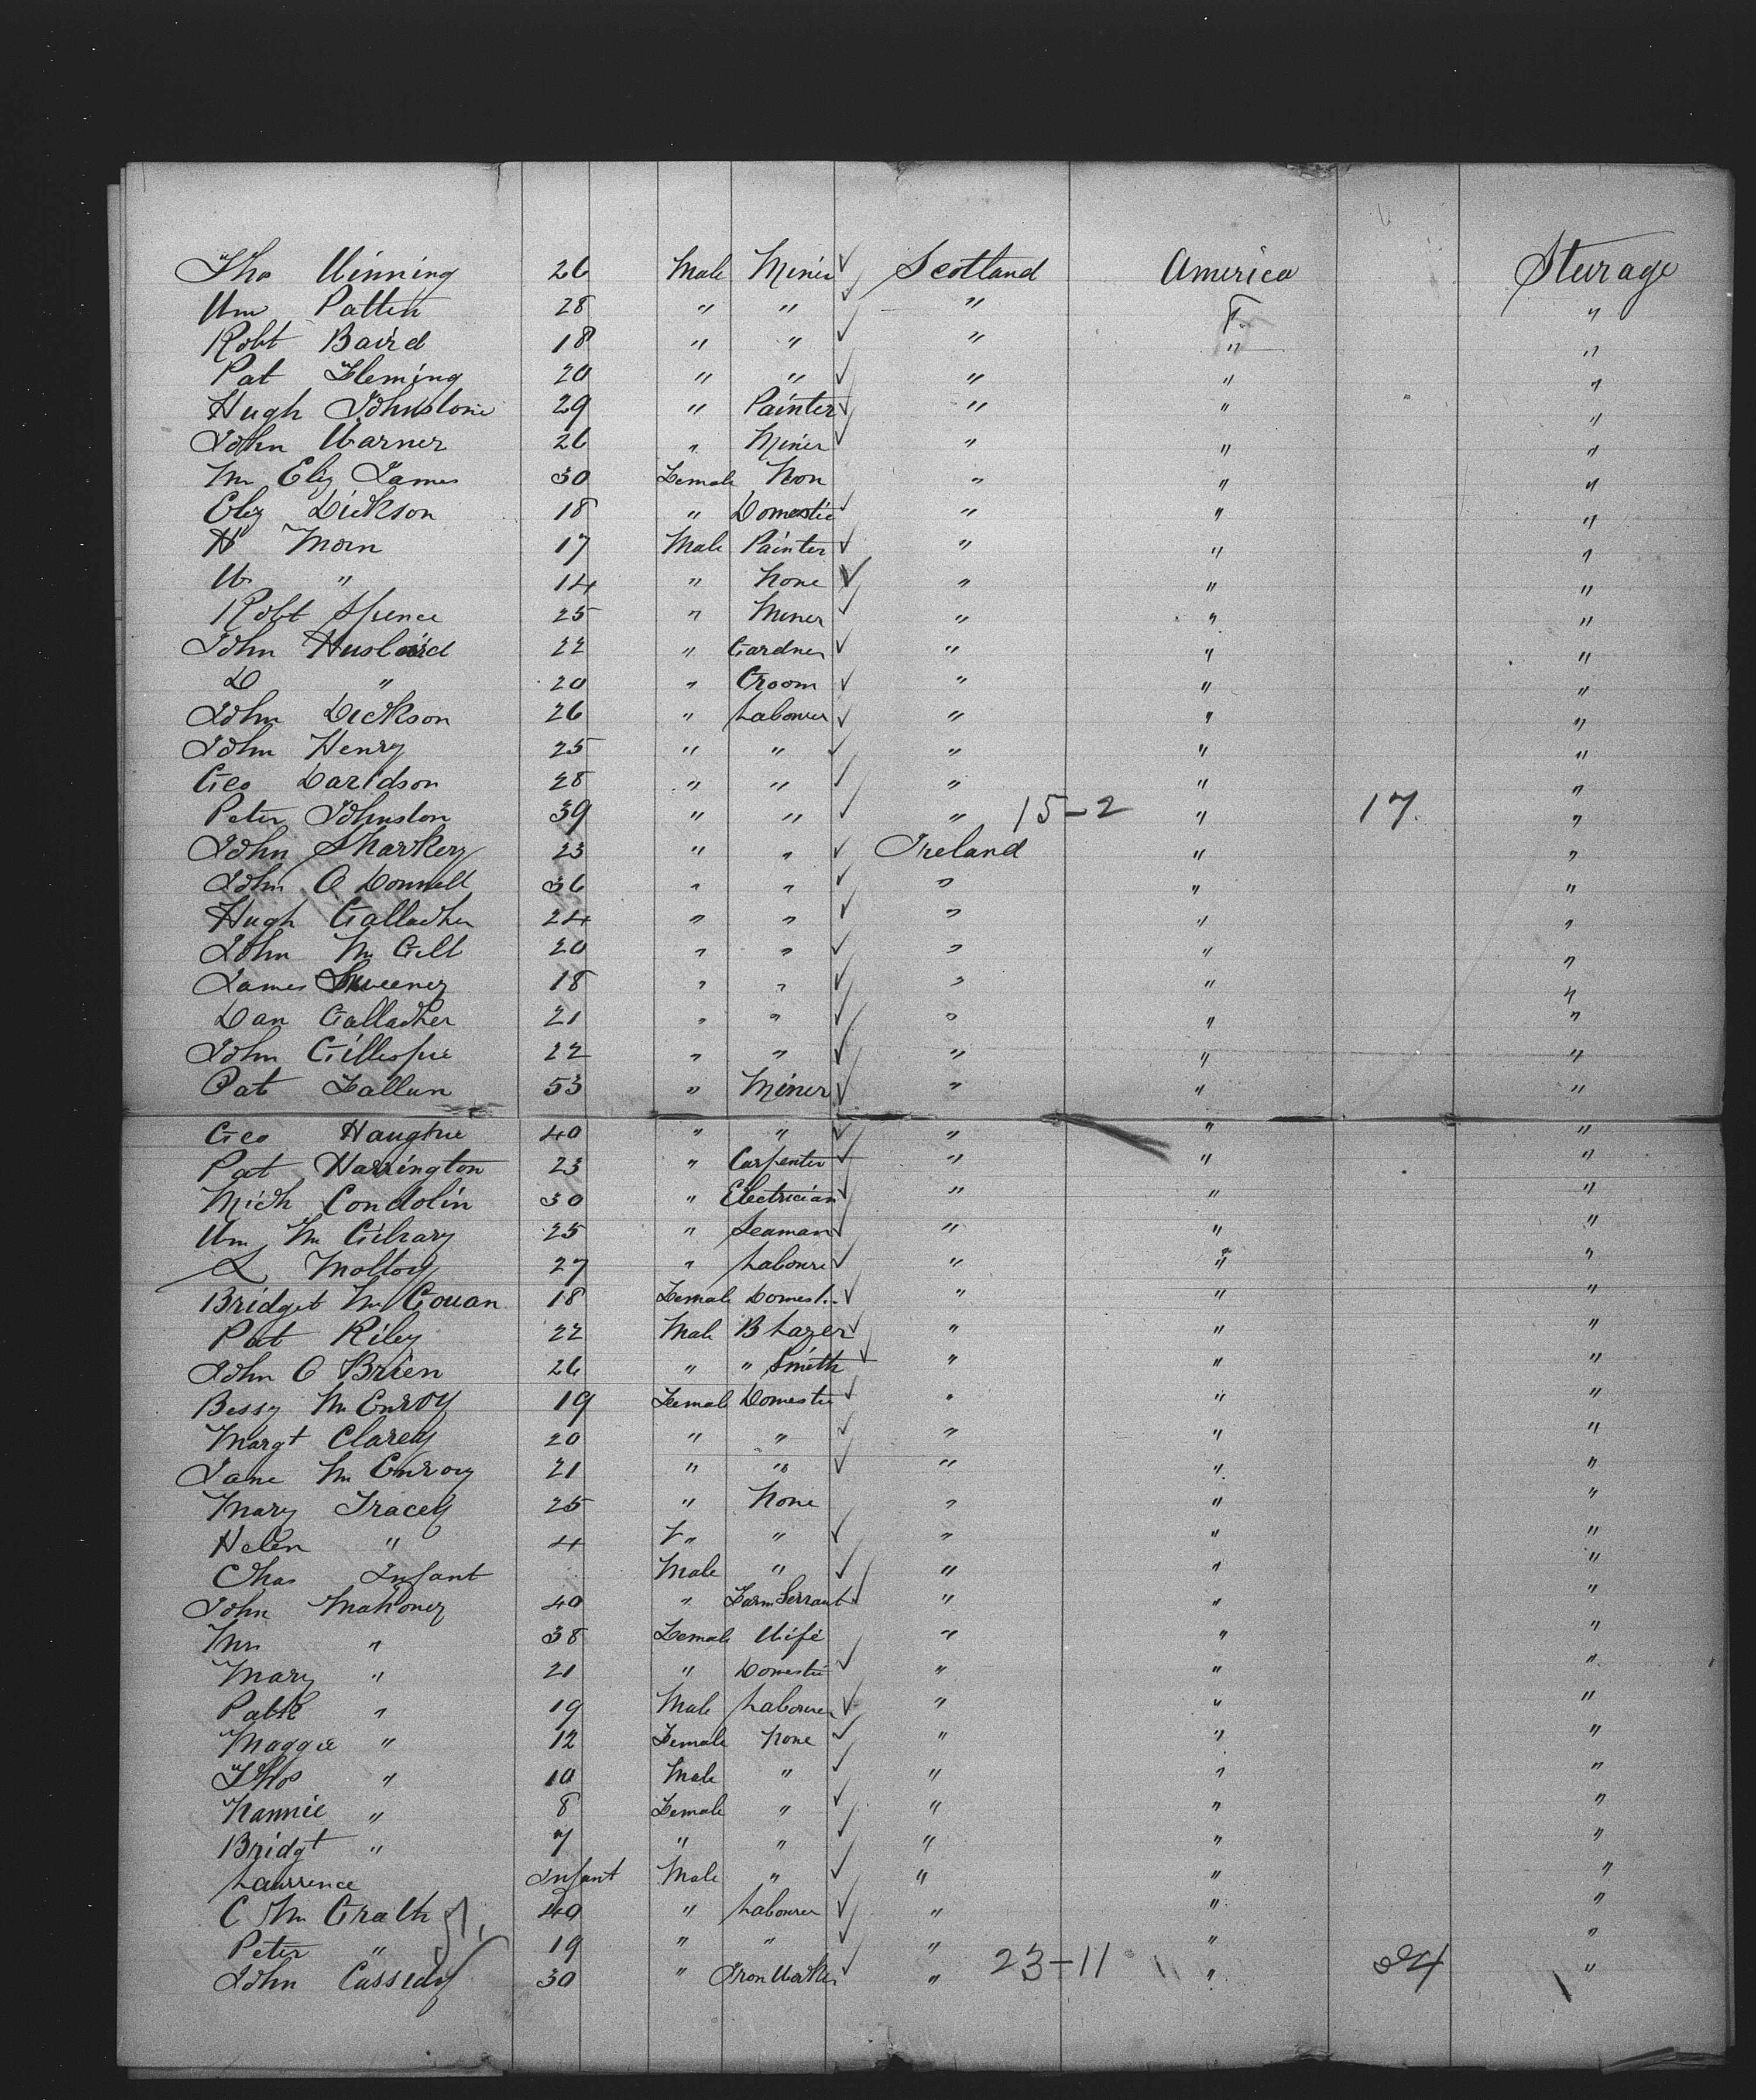 Tho Winning 26 Male Miner ✓ Scotland America Sturage
Wm Patten 28 " " ✓ " F. "
Robt Baird 18 " " ✓ " " "
Pat Fleming 20 " " ✓ " " "
Hugh Johnstone 29 " Painter ✓ " " "
John Warner 26 " Miner ✓ " " "
Mrs Eliz James 30 Female Non " " "
Eliz Dickson 18 " Domestic ✓ " " "
H Morn 17 Male Painter ✓ " " "
W " 14 " None ✓ " " "
Robt Spence 25 " Miner ✓ " " "
John Husband 22 " Gardner ✓ " " "
D " 20 " Groom ✓ " " "
John Dickson 26 " Labourer ✓ " " "
John Henry 25 " " ✓ " " "
Geo Davidson 28 " " ✓ " " "
Peter Johnston 39 " " ✓ " 15-2 " 17. "
John Sharkey 23 " " ✓ Ireland " "
John O Donnell 36 " " ✓ " " "
Hugh Gallacher 24 " " ✓ " " "
John Mc Gill 20 " " ✓ " " "
James Sweeney 18 " " ✓ " " "
Dan Gallacher 21 " " ✓ " " "
John Gillespie 22 " " ✓ " " "
Pat Fallun 53 " Miner ✓ " " "
Geo Haughie 40 " " ✓ " " "
Pat Harrington 23 " Carpenter ✓ " " "
Mich Condolin 30 " Electrician ✓ " " "
Wm Mc Gilvary 25 " Seaman ✓ " " "
L Molloy 27 " Laboure ✓ " " "
Bridget Mc Gouan 18 Female Domest.. ✓ " " "
Pat Riley 22 Male B Lazer ✓ " " "
John O Brien 26 " " Smith ✓ " " "
Bessy Mc Enroy 19 Female Domestic ✓ " " "
Margt Clarey 20 " " ✓ " " "
Jane Mc Enroy 21 " " ✓ " " "
Mary Tracey 25 " None " " "
Helen " 4 " " ✓ " " "
Chas Infant Male " ✓ " " "
John Mahoney 40 " Farm Servant ✓ " " "
Mrs " 38 Female Wife " " "
Mary " 21 " Domestic ✓ " " "
Patk " 19 Male Labourer ✓ " " "
Maggie " 12 Female None ✓ " " "
Thos " 10 Male " ✓ " " "
Nannie " 8 Female " ✓ " " "
Bridgt " 7 " " ✓ " " "
Lawrence Infant Male " ✓ " " "
C Mc Grath 40 " Labourer ✓ " " "
Peter " 19 " " ✓ " " "
John Cassidy 30 " Iron Worker ✓ " 23-11 " 24 "